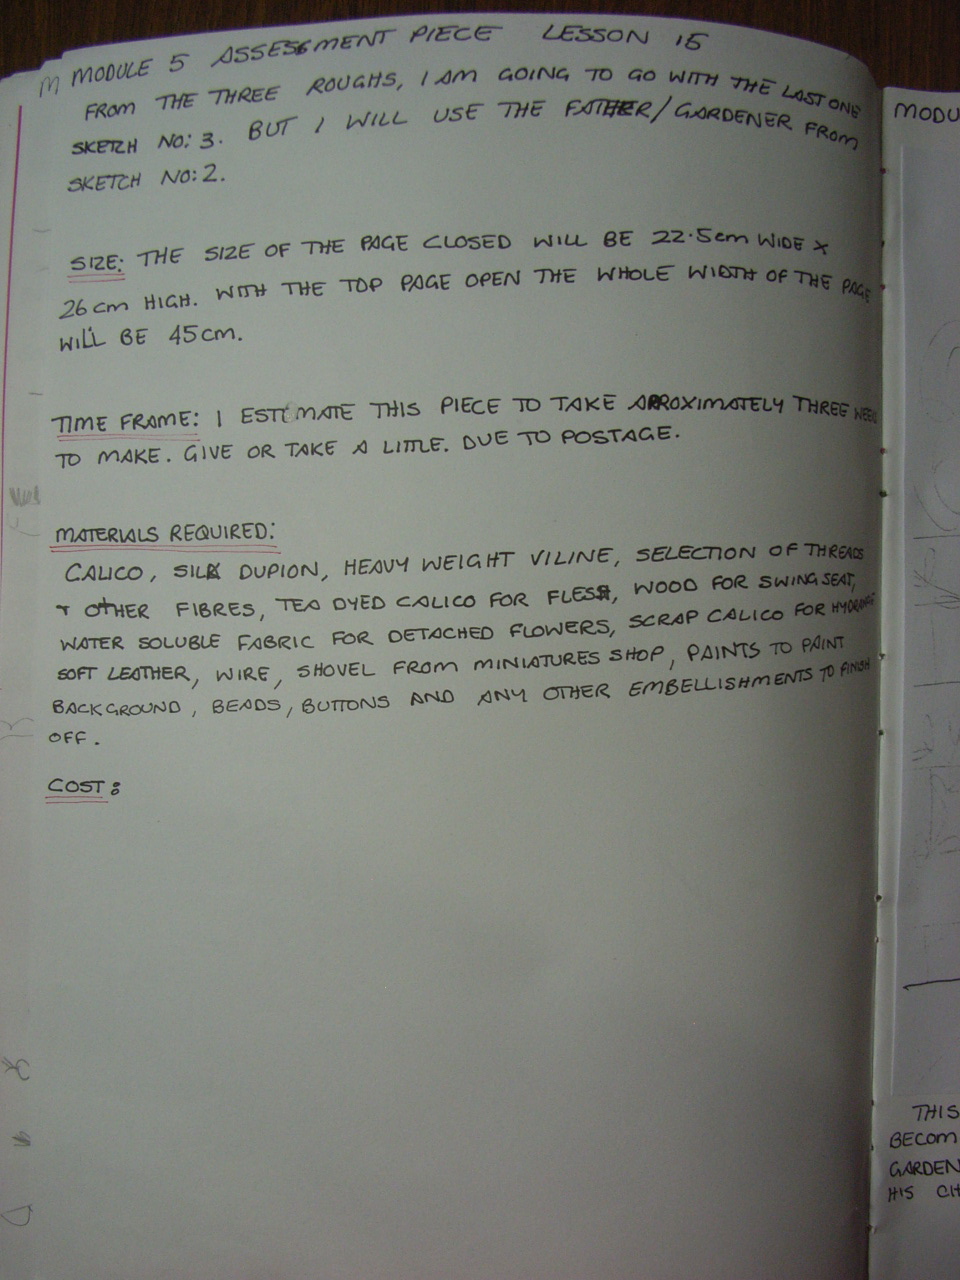 MODULE 5 ASSESSMENT PIECE LESSON 15
FROM THE THREE ROUGHS, I AM GOING TO GO WITH THE LAST ONE
SKETCH NO: 3. BUT I WILL USE THE FATHER/GARDENER FROM
SKETCH NO: 2.
SIZE: THE SIZE OF THE PAGE CLOSED WILL BE 22.5cm WIDE X
26cm HIGH. WITH THE TOP PAGE OPEN THE WHOLE WIDTH OF THE PAGE
WILL BE 45cm.
TIME FRAME: I ESTIMATE THIS PIECE TO TAKE APROXIMATELY THREE WEEKS
TO MAKE. GIVE OR TAKE A LITTLE. DUE TO POSTAGE.
MATERIALS REQUIRED:
CALICO, SILK DUPION, HEAVY WEIGHT VILINE, SELECTION OF THREADS
+ OTHER FIBRES, TEA DYED CALICO FOR FLESH, WOOD FOR SWING SEAT,
WATER SOLUBLE FABRIC FOR DETACHED FLOWERS, SCRAP CALICO FOR
SOFT LEATHER, WIRE, SHOVEL FROM MINIATURES SHOP, PAINTS TO PAINT
BACKGROUND, BEADS, BUTTONS AND ANY OTHER EMBELLISHMENTS TO FINISH
OFF.
COST:
MODU
THIS
BECOM
GARDEN
HIS CH